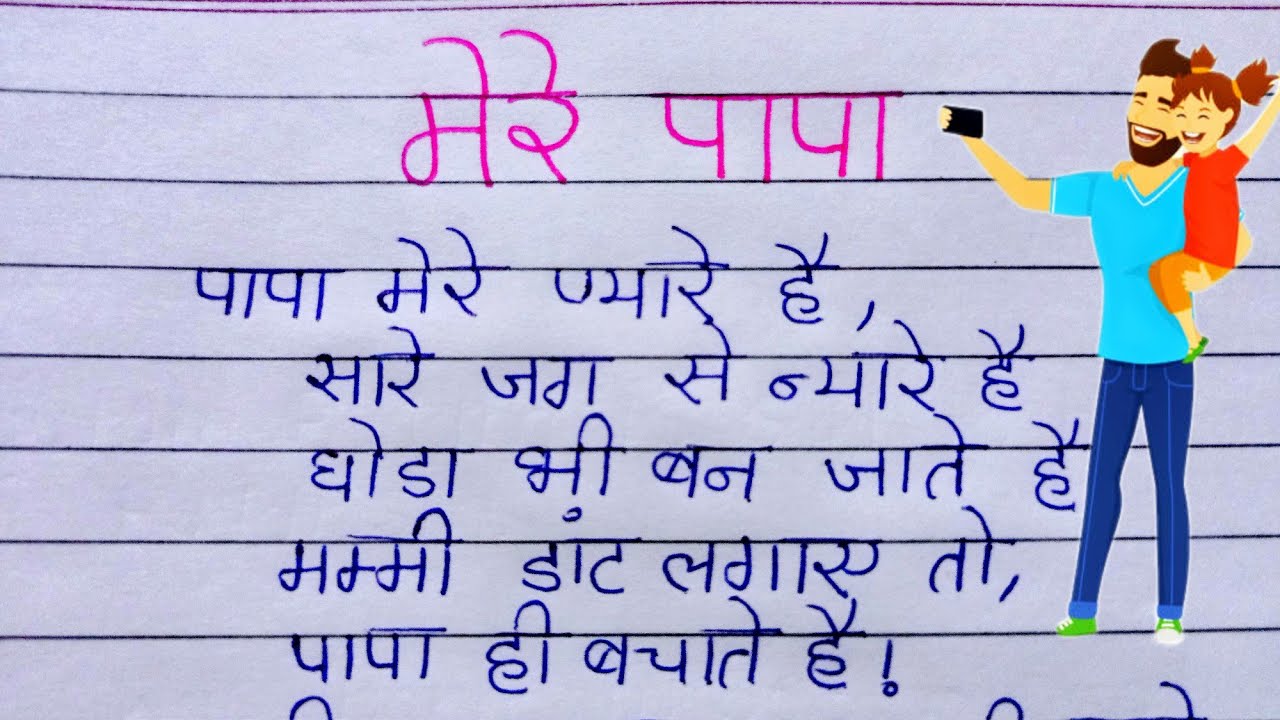 मेरे पापा
पापा मेरे प्यारे है,
सारे जग से न्यारे है
घोडा भी बन जाते है
मम्मी डांट लगाए तो,
पापा ही बचाते है!